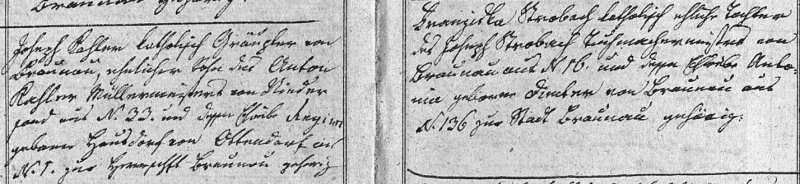 Braunau gehörig.
Joseph Kahler katholisch Gräupler von
Braunau, ehelicher Sohn des Anton
Kahler Müllermeisters von Nieder
aus N. 33. und dessen Eheweibe
geborne Hausdorf von Ottendorf aus
N. 1. zur Herrschft Braunau gehörig
Franziska Strobach katholisch eheliche Tochter
des Joseph Strobach Tuchmachermeisters von
Braunau aus N 16. und dessen Eheweibe Anto-
nia geborne von Braunau aus
N. 136 zur Stadt Braunau gehörig.